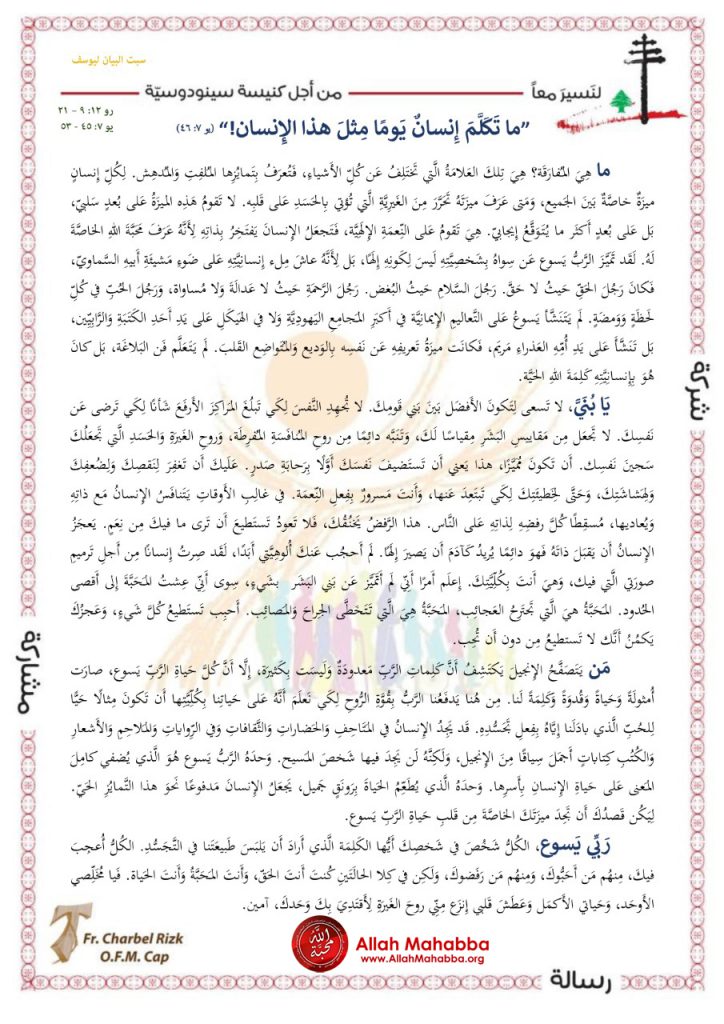 سبت البيان ليوسف
لنَسيرَ معاً
من أجل كنيسة سينودوسيّة
رو ١٢: ٩ – ٢١
يو ٧: ٤٥ - ٥٣
”ما تَكَلَّمَ إِنسانٌ يَومًا مِثلَ هذا الإِنسان!“ (يو ٧: ٤٦)
ما هِيَ المُفارَقَة؟ هِيَ تِلكَ العَلامَةُ الَّتي تَختَلِفُ عَن كُلِّ الأَشياءِ، فَتُعرَفُ بِتَمايُزِها المُلفِتِ وَالمُدهِش. لِكُلِّ إِنسانٍ
ميزَةٌ خاصَّةٌ بَينَ الجَميع، وَمَتى عَرَفَ ميزَتَهُ تَحَرَّرَ مِنَ الغَيرِيَّةِ الَّتي تُؤتي بِالحَسَدِ عَلى قَلبِه. لا تَقومُ هَذِهِ الميزَةُ عَلى بُعدٍ سَلبيّ،
بَل عَلى بُعدٍ أَكثَر ما يُتَوَقَّعُ إِيجابيّ. هِيَ تَقومُ عَلى النِّعمَةِ الإِلَهِيَّة، فَتَجعَلُ الإِنسانَ يَفتَخِرُ بِذاتِهِ لِأَنَّهُ عَرَفَ مَحَبَّةَ اللهِ الخاصَّةَ
لَهُ. لَقَد تَمَيَّزَ الرَّبُّ يَسوع عَن سِواهُ بِشَخصِيَّتِهِ لَيسَ لِكَونِهِ إِلَهًا، بَل لِأَنَّهُ عاشَ مِلء إِنسانِيَّتِهِ عَلى ضَوءِ مَشيئَةِ أَبيهِ السَّماويّ،
فَكانَ رَجُلَ الحَقِّ حَيثُ لا حَقَّ. رَجُلَ السَّلامِ حَيثُ البُغض. رَجُلَ الرَّحمَةِ حَيثُ لا عَدالَةَ وَلا مُساواة، وَرَجُلَ الحُبِّ في كُلِّ
لَحظَةٍ وَوَمضَةٍ. لَم يَتَنَشَّأ يَسوعُ عَلى التَّعاليمِ الإِيمانِيَّةِ في أَكبَرِ المَجامِعِ اليَهودِيَّةِ وَلا في الهَيكَلِ عَلى يَدِ أَحَدِ الكَتَبَةِ وَالرّابِيِّين،
بَل تَنَشَّأَ عَلى يَدِ أُمِّهِ العَذراءِ مَريَم، فَكانَت ميزَةُ تَعريفِهِ عَن نَفسِهِ بِالوَديعِ وَالمُتَواضِعِ القَلبَ. لَم يَتَعَلَّم فَن البَلاغَة، بَل كانَ
هُوَ بِإِنسانِيَّتِهِ كَلِمَةَ اللهِ الحَيَّة.
يَا بُنَيَّ، لا تَسعى لِتَكونَ الأَفضَل بَينَ بَني قَومِكَ. لا تُجهِدِ النَّفسَ لِكَي تَبلُغَ المَراكِزَ الأَرفَعَ شَأنًا لِكَي تَرضى عَن
نَفسِكَ. لا تَجعَل مِن مَقاييسِ البَشَرِ مِقياسًا لَكَ، وَتَنَبَّه دائِمًا مِن روحِ المُنافَسَةِ المُفرِطَة، وَروحِ الغَيرَةِ وَالحَسَدِ الَّتي تَجعَلُكَ
سَجينَ نَفسِك. أَن تَكونَ مُمَيَّزًا، هذا يَعني أَن تَستَضيفَ نَفسَكَ أَوَّلًا بِرَحابَةِ صَدرٍ. عَلَيكَ أَن تَغفِرَ لِنَقصِكَ وَلِضُعفِكَ
وَلِهَشاشَتِكَ، وَحَتَّى لِخَطيئَتِكَ لِكَي تَبتَعِدَ عَنها، وَأَنتَ مَسرورٌ بِفِعلِ النِّعمَة. في غالِبِ الأَوقاتِ يَتَنافَسُ الإِنسانُ مَع ذاتِهِ
وَيُعاديها، مُسقِطًا كُلَّ رَفضِهِ لِذاتِهِ عَلى النَّاس. هذا الرَّفضُ يَخنُقُكَ، فَلا تَعودُ تَستَطيعَ أَن تَرى ما فيكَ مِن نِعَمٍ. يَعجَزُ
الإِنسانُ أَن يَقبَلَ ذاتَهُ فَهوَ دائِمًا يُريدُ كَآدَمَ أَن يَصيرَ إِلَهًا. لَم أَحجُب عَنكَ أُلوهِيَّتي أَبَدًا، لَقَد صِرتُ إِنسانًا مِن أَجلِ تَرميمِ
صورَتي الَّتي فيك، وَهِيَ أَنتَ بِكُلِّيَّتِكَ. إِعلَم أَمرًا أَنّي لَم أَتَمَيَّز عَن بَني البَشَر بِشَيءٍ، سِوى أَنّي عِشتُ المَحَبَّةَ إِلى أَقصى
الحُدود. المَحَبَّةُ هِيَ الَّتي تَجتَرِحُ العَجائِب، المَحَبَّةُ هِيَ الَّتي تَتَخَطَّى الجِراحَ وَالمَصائِب. أَحبِب تَستَطيعُ كُلَّ شَيءٍ، وَعَجزُكَ
يَكمُنُ أَنَّكَ لا تَستَطيعُ مِن دونِ أَن تُحِب.
مَن يَتَصَفَّحُ الإِنجيلَ يَكتَشِفُ أَنَّ كَلِماتِ الرَّبِّ مَعدودَةٌ وَلَيسَت بِكَثيرَة، إِلَّا أَنَّ كُلَّ حَياةِ الرَّبِّ يَسوع، صارَت
أُمثولَةً وَحَياةً وَقُدوَةً وَكَلِمَةً لَنا. مِن هُنا يَدفَعُنا الرَّبُّ بِقُوَّةِ الرُّوحِ لِكَي نَعلَمَ أَنَّهُ عَلى حَياتِنا بِكُلِّيَّتِها أَن تَكونَ مِثالًا حَيًّا
لِلحُبِّ الَّذي بادَلَنا إِيَّاهُ بِفِعلِ تَجَسُّدِهِ. قَد يَجِدُ الإِنسانُ في المَتاحِفِ وَالحَضاراتِ وَالثَّقافاتِ وَفي الرِّواياتِ وَالمَلاحِمِ وَالأَشعارِ
وَالكُتُبِ كِتاباتٍ أَجمَلَ سِياقًا مِنَ الإِنجيلِ، وَلَكِنَّهُ لَن يَجِدَ فيها شَخصَ المَسيح. وَحدَهُ الرَّبُّ يَسوع هُوَ الَّذي يُضفي كامِلَ
المَعنى عَلى حَياةِ الإِنسانِ بِأَسرِها. وَحدَهُ الَّذي يُطَعِّمُ الحَياةَ بِرَونَقٍ جَميل، يَجعَلُ الإِنسانَ مَدفوعًا نَحوَ هَذا التَّمايُزِ الحَيّ.
لِيَكُن قَصدُكَ أَن تَجِدَ ميزَتَكَ الخاصَّةَ مِن قَلبِ حَياةِ الرَّبِّ يَسوع.
رَبِّي يَسوع، الكُلُّ شَخُصَ في شَخصِكَ أَيُّها الكَلِمَة الَّذي أَرادَ أَن يَلبَسَ طَبيعَتَنا في التَّجَسُّدِ. الكُلُّ أُعجِبَ
فيكَ، مِنهُم مَن أَحَبُّوكَ، وَمِنهُم مَن رَفَضوكَ، وَلَكِن في كِلا الحالَتَينِ كُنتَ أَنتَ الحَقّ، وَأَنتَ المَحَبَّةُ وَأَنتَ الحَياة. فَيا مُخَلِّصي
الأَوحَد، وَحَياتي الأَكمَل وَعَطَشَ قَلبي إِنزَع مِنّي روحَ الغَيرَةِ لِأَقتَدِيَ بِكَ وَحدَكَ، آمين.
شركة
مشاركة
Fr. Charbel Rizk
O.F.M. Cap
الله محبة
Allah Mahabba
www.AllahMahabba.org
رسالة